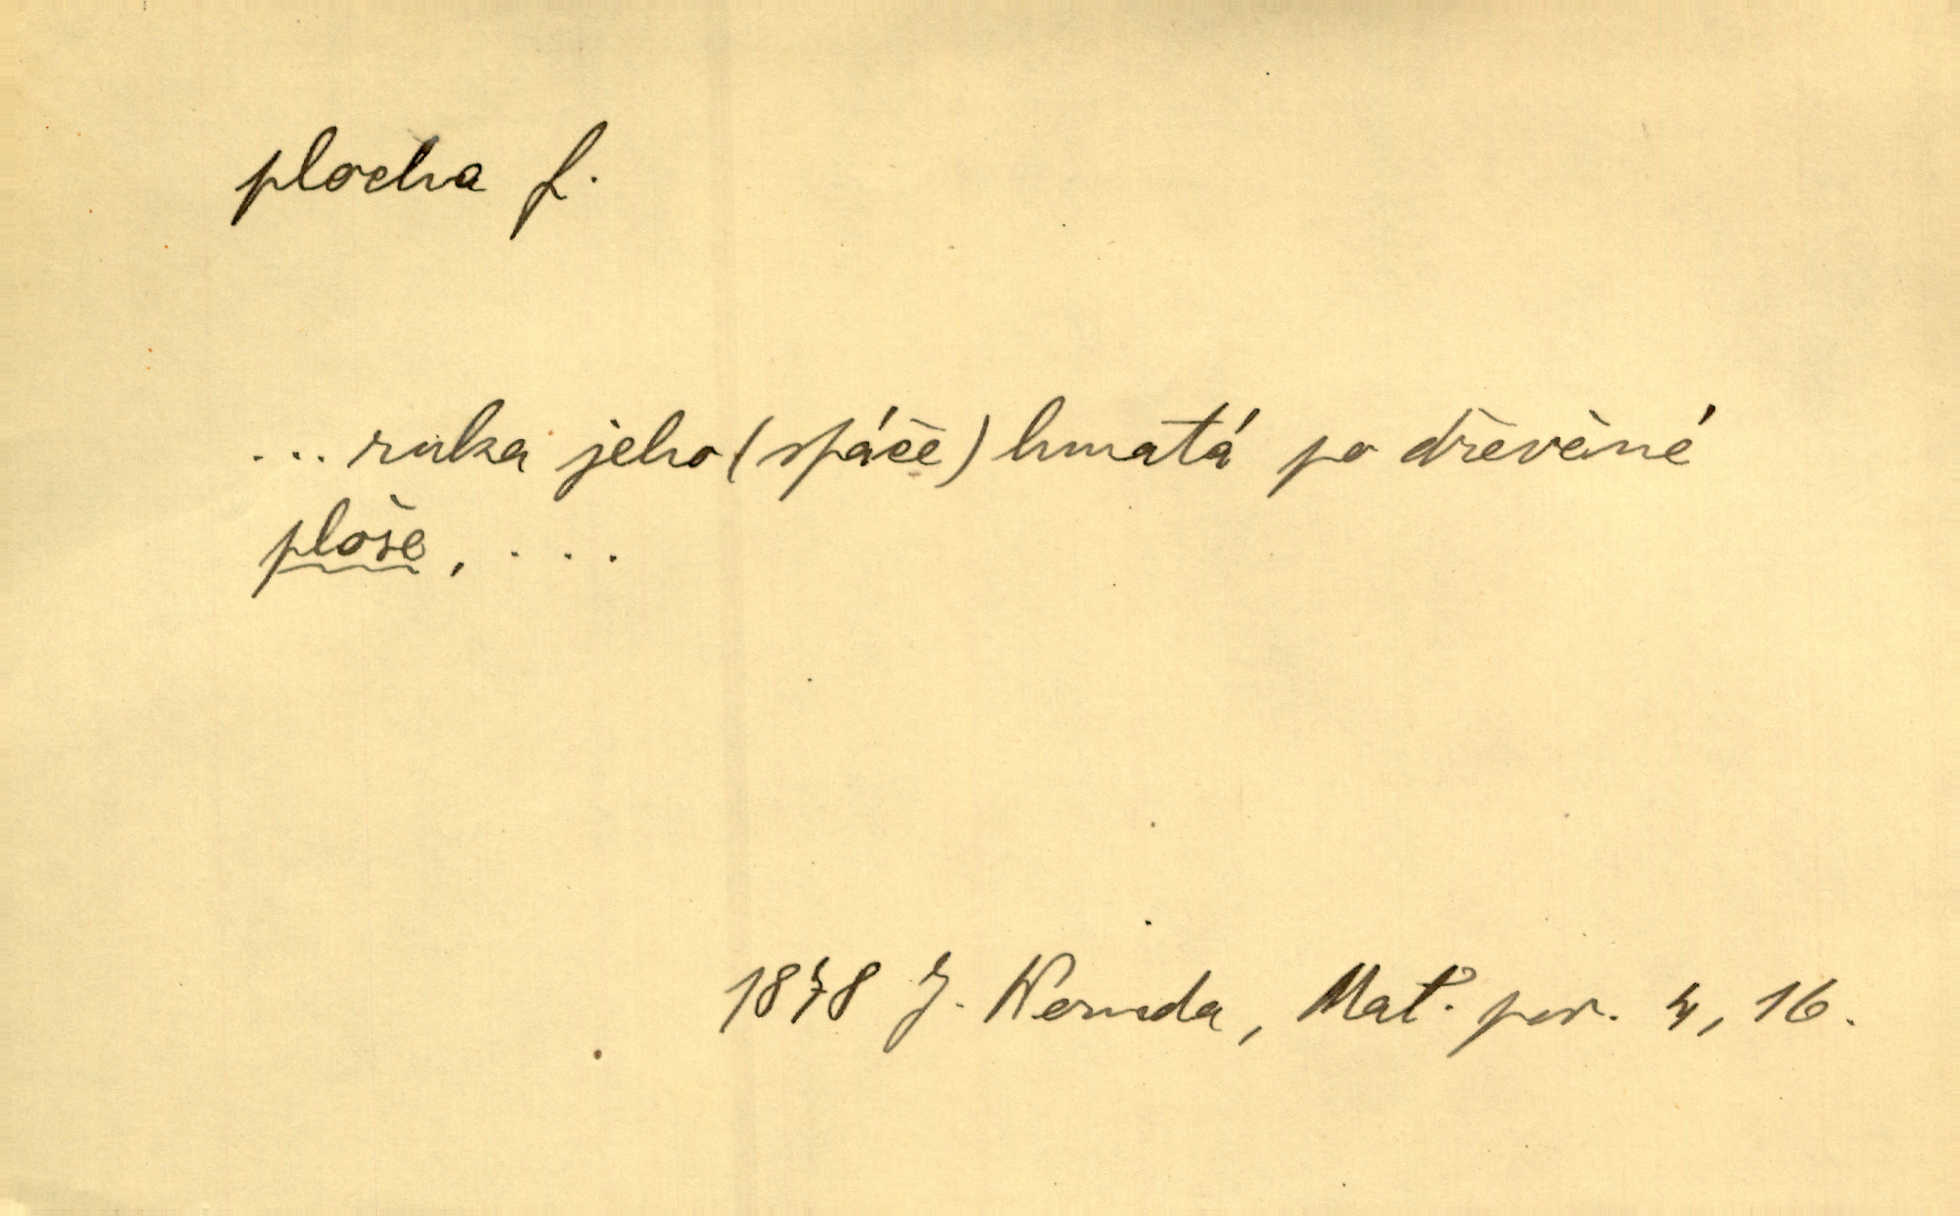 plocha f.
... ruka jeho (spáče) hmatá po dřevěné
ploše, ...
1878 J. Neruda, Mat. pov. 4, 16.